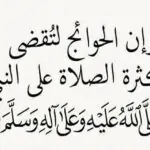 إن الحوائج لتُقضى
كثرة الصلاة على النب
لَّى اللَّهُ عَلَيْهِ وَعَلَى آلِهِ وَسَلَّمَ